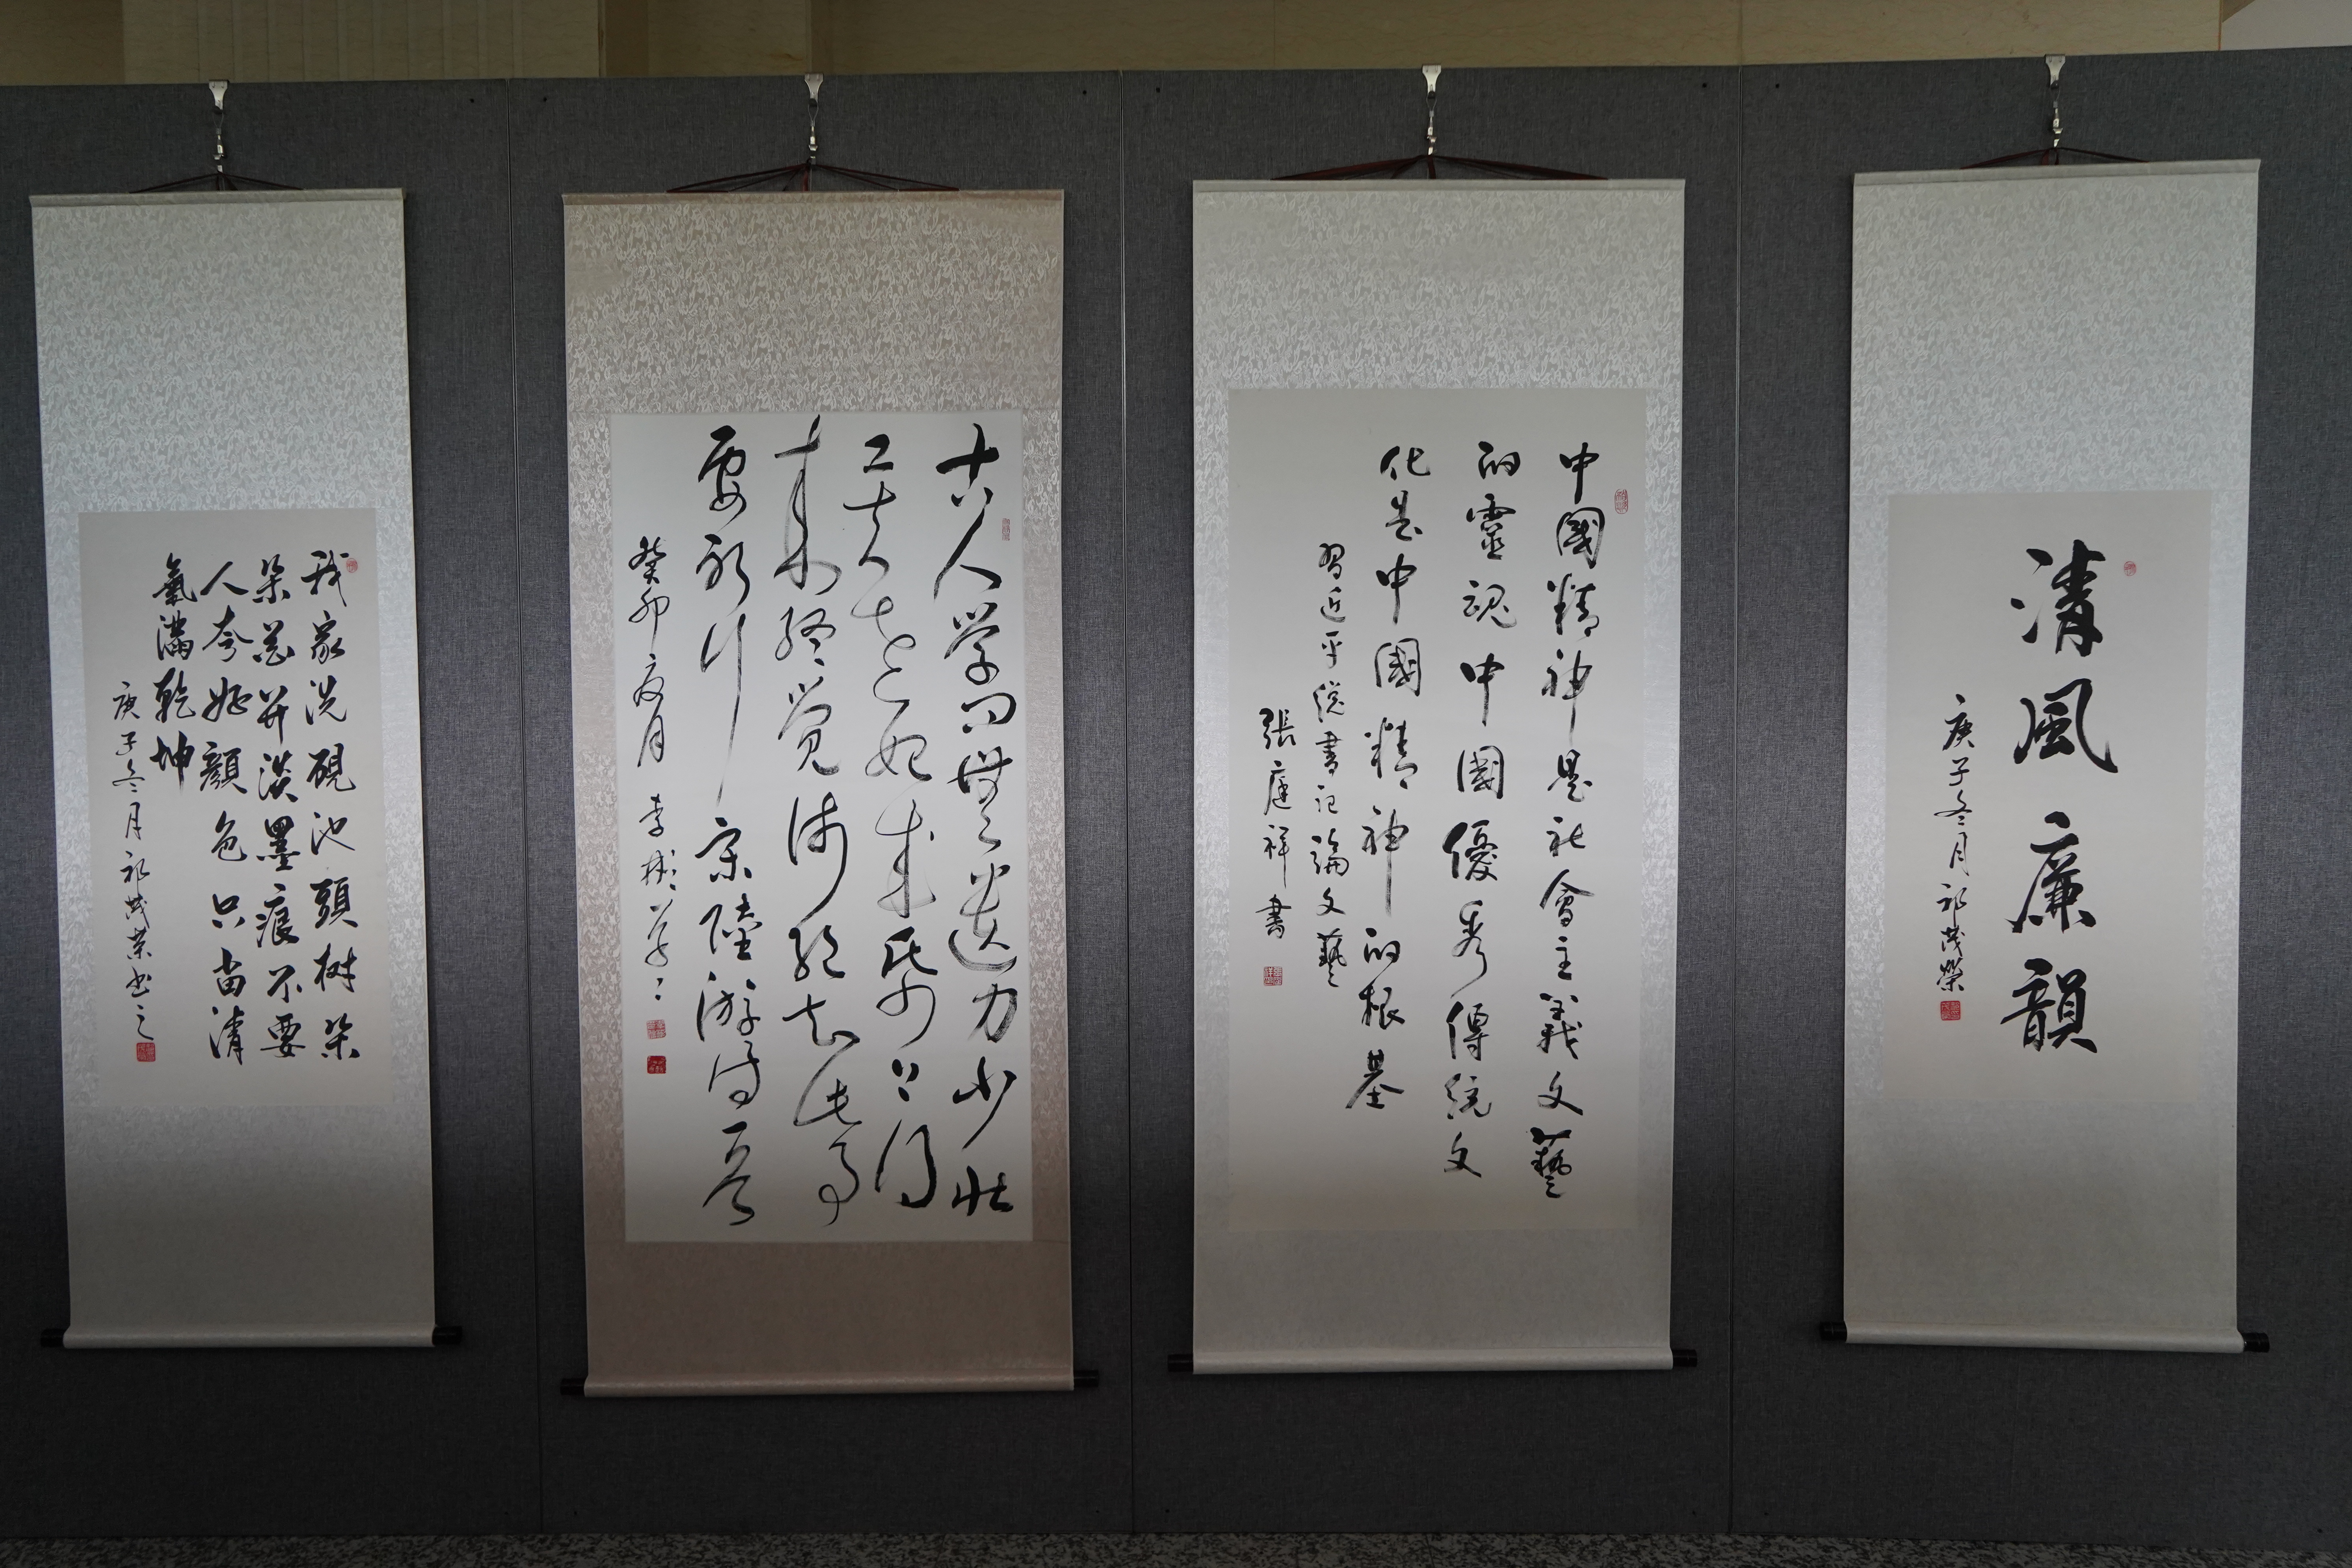 清風廉韻
庚子冬月祁茂榮
中國精神是社會主義文藝
的靈魂中國優秀傳統文
化是中國精神的根基
習近平總書記論文藝
張庭祥書
古人学问無遗力少壮
工夫老始成纸上得
来终觉浅绝知此事
要躬行宋陸游诗一首
癸卯夏月李彬草
我家洗硯池頭树朵
朵花開淡墨痕不要
人夸好顏色只留清
氣滿乾坤
庚子冬月祁茂荣书之